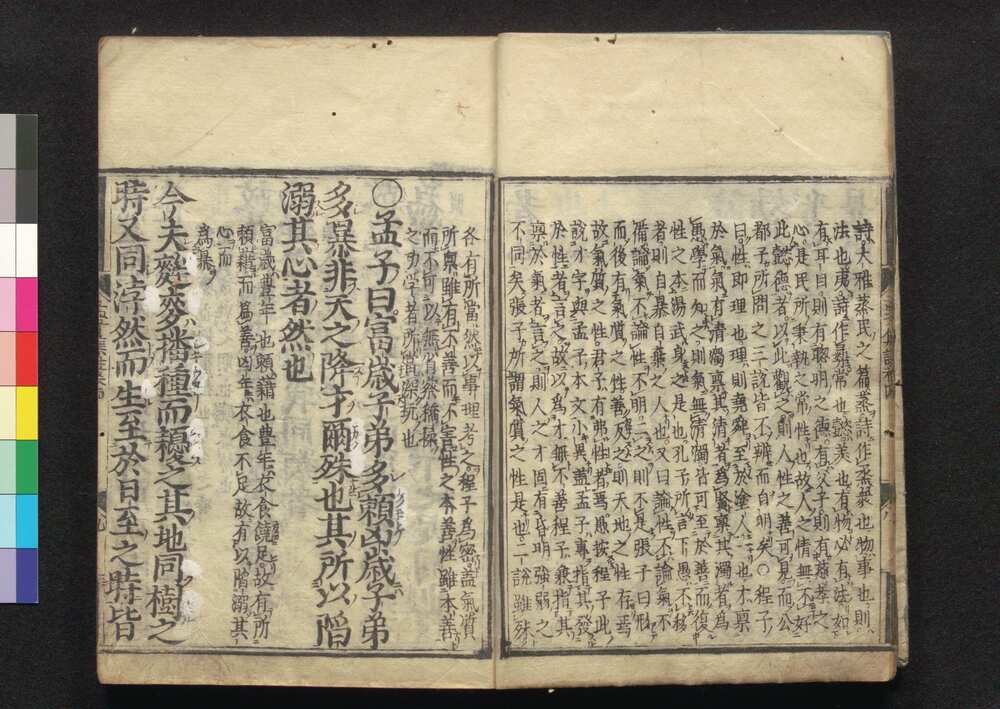 詩大雅蒸民之篇蒸詩作烝衆也物事也則
法也夷詩作彝常也懿美也有物必有法如
有耳目則有聰明之德有父子則有慈孝之
心是民所秉執之常性也故人之情無不好
此懿德者以此觀之則人性之善可見而公
都子所問之三說皆不辨而自明矣○程子
曰性即理也理則堯舜至於塗人一也才稟
於氣氣有清濁稟其清者為賢稟其濁者為
愚學而知之則氣無清濁皆可至於善而復
性之本湯武身之是也孔子所言下愚不移
者則自暴自棄之人也又曰論性不論氣不
備論氣不論性不明二之則不是張子曰形
而後有氣質之性善反之則天地之性存焉
故氣質之性君子有弗性者焉愚按程子此
說才字與孟子本文小異蓋孟子專指其發
於性者言之故以為才無不善程子兼指其
稟於氣者言之則人之才固有昏明強弱之
不同矣張子所謂氣質之性是也二說雖殊
各有所當然以事理考之程子為密蓋氣質
所稟雖有不善而不害性之本善性雖本善
而不可以無省察矯揉
之功學者所當深玩也
孟子曰富歲子弟多賴凶歲子弟
多暴非天之降才爾殊也其所以陷
溺其心者然也
富歲豊年也賴藉也豊年衣食饒足故有所
賴藉而為善凶年衣食不足故有以陷溺其
心而
為暴
今夫麰麥播種而耰之其地同樹之
時又同浡然而生至於日至之時皆